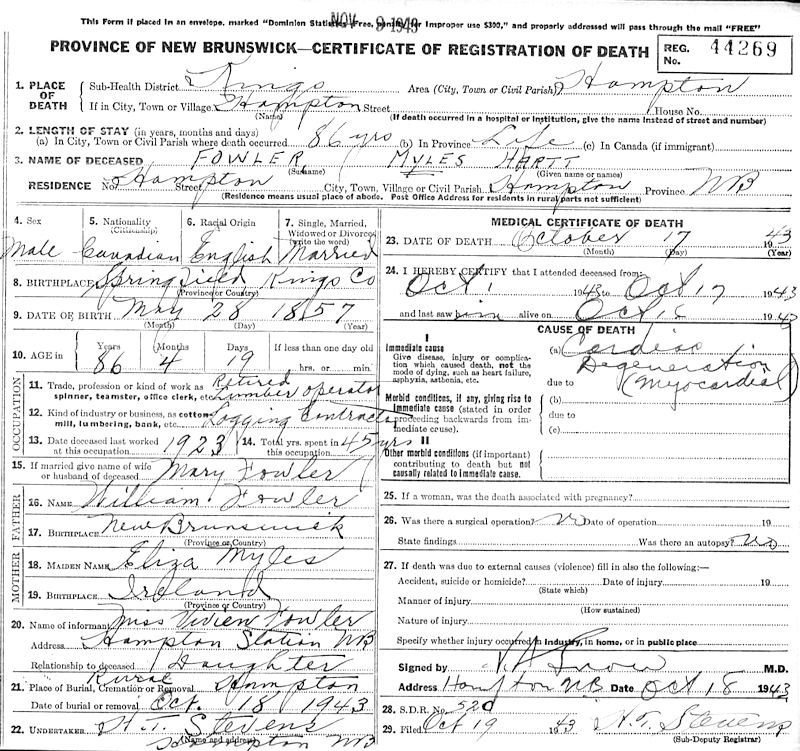 This form if placed in an envelope, marked "Dominion Statistics Free, Penalty for Improper use $300," and properly addressed will pass through the mail "FREE"
NOV 9 1943
PROVINCE OF NEW BRUNSWICK—CERTIFICATE OF REGISTRATION OF DEATH
REG. No. 44269
1. PLACE OF DEATH
Sub-Health District Kings Area (City, Town or Civil Parish) Hampton
If in City, Town or Village Hampton Street House No.
(Name) (If death occurred in a hospital or institution, give the name instead of street and number)
2. LENGTH OF STAY (in years, months and days)
(a) In City, Town or Civil Parish where death occurred 86 yrs (b) In Province Life (c) In Canada (if immigrant)
3. NAME OF DECEASED FOWLER, MYLES HARTT
(Surname) (Given name or names)
RESIDENCE No. Hampton Street City, Town, Village or Civil Parish Hampton Province NB
(Residence means usual place of abode. Post Office Address for residents in rural parts not sufficient)
4. Sex Male
5. Nationality (Citizenship) Canadian
6. Racial Origin English
7. Single, Married, Widowed or Divorced (write the word) Married
8. BIRTHPLACE Springfield Kings Co
(Province or Country)
9. DATE OF BIRTH May 28 1857
(Month) (Day) (Year)
10. AGE in Years 86 Months 4 Days 19 If less than one day old
hrs. or min.
OCCUPATION
11. Trade, profession or kind of work as spinner, teamster, office clerk, etc. Retired Lumber operator
12. Kind of industry or business, as cotton mill, lumbering, bank, etc. Logging Contractor
13. Date deceased last worked at this occupation 1923
14. Total yrs. spent in this occupation 45 yrs
15. If married give name of wife or husband of deceased Mary Fowler
FATHER
16. NAME William Fowler
17. BIRTHPLACE New Brunswick
(Province or Country)
MOTHER
18. MAIDEN NAME Eliza Myles
19. BIRTHPLACE Ireland
(Province or Country)
20. Name of informant Miss Vivien Fowler
Address Hampton Station NB
Relationship to deceased Daughter
21. Place of Burial, Cremation or Removal Rural Hampton
Date of burial or removal Oct. 18 1943
22. UNDERTAKER H. T. Stevens
(Name and address)
Hampton NB
MEDICAL CERTIFICATE OF DEATH
23. DATE OF DEATH October 17 1943
(Month) (Day) (Year)
24. I HEREBY CERTIFY that I attended deceased from:
Oct 1 1943 to Oct 17 1943
and last saw him alive on Oct 16 1943
CAUSE OF DEATH
I
Immediate cause
Give disease, injury or complication which caused death, not the mode of dying, such as heart failure, asphyxia, asthenia, etc.
(a) Cardiac Degeneration (Myocardial)
due to
Morbid conditions, if any, giving rise to immediate cause (stated in order proceeding backwards from immediate cause).
(b)
due to
(c)
II
Other morbid conditions (if important) contributing to death but not causally related to immediate cause.
25. If a woman, was the death associated with pregnancy?
26. Was there a surgical operation? No Date of operation 19
State findings Was there an autopsy? No
27. If death was due to external causes (violence) fill in also the following:—
Accident, suicide or homicide? Date of injury 19
(State which)
Manner of injury
(How sustained)
Nature of injury
Specify whether injury occurred in industry, in home, or in public place
Signed by Snow M.D.
Address Hampton N.B. Date Oct 18 1943
28. S.D.R. No. 520
29. Filed Oct 19 1943 H. T. Stevens
(Sub-Deputy Registrar)